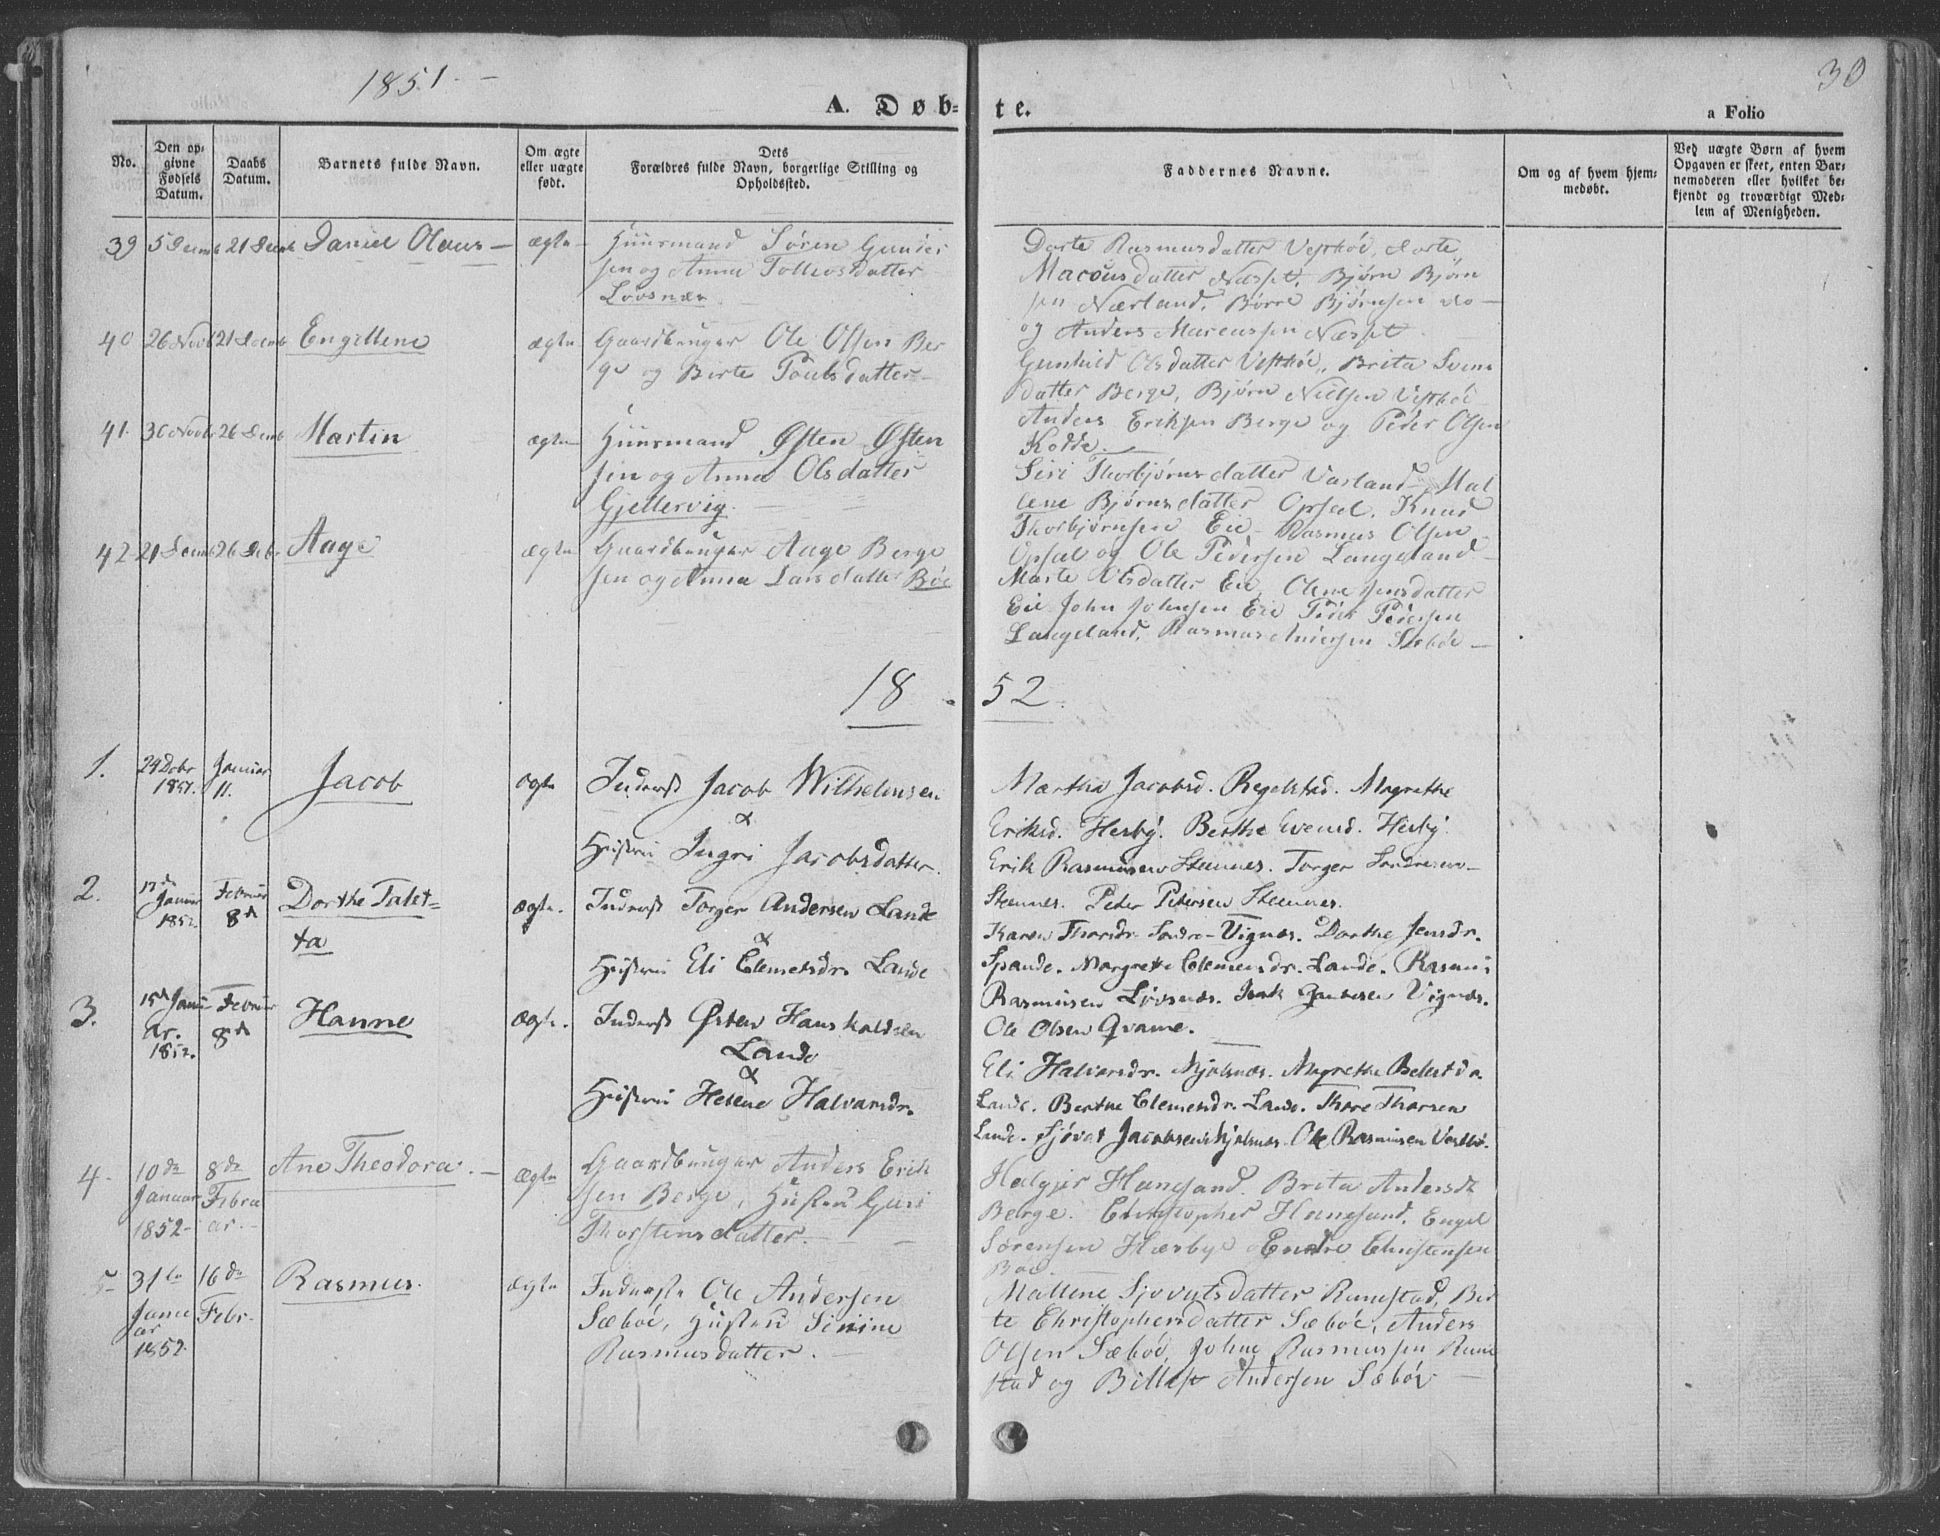 1851.
30
A. Døb-
te.
a Folio
No.
Den op-
givne
Fødsels
Datum.
Daabs
Datum.
Barnets fulde Navn.
Om ægte
eller uægte
født.
Dets
Forældres fulde Navn, borgerlige Stilling og
Opholdssted.
Faddernes Navne.
Om og af hvem hjem-
medøbt.
Ved uægte Børn af hvem
Opgaven er skeet, enten Bar-
nemoderen eller hvilket be-
kjendt og troværdigt Med-
lem af Menigheden.
39
5 Decmb
21 Decmb
Daniel Olaus
ægte
Huusmand Søren Gunder
sen og Anna Tollevsdatter
Lovsnæs
Dorte Rasmusdatter Vestbøe, Dorte
Marcusdatter Næsset, Bjørn Bjørn
sen Nærland, Børre Bjørnsen do
og Anders Marcussen Næsset
40
26 Novb
21 Decmb
Engeline
ægte
Gaardbruger Ole Olsen Ber
ge og Birte Poulsdatter
Gunhild Olsdatter Vestbøe, Brita Svens
datter Berge, Bjørn Nielsen Vestbøe
Anders Eriksen Berge og Peder Olsen
Kodde
41.
30 Novbr
26 Decmb
Martin
ægte
Huusmand Østen Østen
sen og Anna Olsdatter
Gjellervig
Siri Thorbjørnsdatter Varland, Mal
lene Bjørnsdatter Opsal, Knud
Thorbjørnsen Eie, Rasmus Olsen
Opsal og Ole Pedersen Langeland
42
21 Decmb
26 Decbr
Aage
ægte
Gaardbruger Aage Berge
sen og Anna Larsdatter Bøe
Marte Olsdatter Eie, Olene Jensdatter
Eie John Johnsen Eie Peder Pedersen
Langeland, Rasmus Andersen Sæbøe
18 52.
1.
29 Decbr
1851.
Januar
11.
Jacob
ægte
Inderst Jacob Wilhelmsen
&
Hustru Ingri Jacobsdatter.
Martha Jacobsd. Regelstad. Magrethe
Eriksd. Hesby. Berthe Evensd. Hesby.
Erik Rasmusen Steinnes. Torger Sondresen
Steinnes. Peter Petersen Steinnes.
2.
17de
Januar
1852.
Februar
8de
Dorthe Talet=
ta
ægte.
Inderst Torger Andersen Lande
&
Hustru Eli Clemetsdr. Lande
Karen Thorsdr. Søndre-Vignæs. Dorthe Jensdr.
Spande. Margrethe Clemensdr. Lande. Rasmus
Rasmusen Løvsnæs. Isak Gautesen Vignæs.
Ole Olsen Qvame.
3.
15de Janu
ar.
1852.
Februar
8de
Hanne
Ægte.
Inderst Østen Hans Knudsen
Lande
&
Hustru Helene Halvorsdr.
Eli Halvorsdr. Mjølsnæs. Magrethe Belestdr.
Lande. Berthe Clemensdr. Lande. Thore Thorsen
Lande. Sjøvat Jacobsen Mjølsnæs. Ole Rasmusen Vestbø.
4.
10de
Januar
1852
8de
Febru
ar.
Ane Theodora.
Ægte
Gaardbruger Anders Erik
sen Berge, Hustru Guri
Thorstensdatter.
Helgjer Hanesand. Brita Andersdt
Berge. Christopher Hanesand, Engel
Sørensen Hæsbye Endre Christensen
Bøe
5
31te
Janu
ar
1852.
16de
Febr.
Rasmus.
ægte
Inderste Ole Andersen
Sæbøe, Hustru Serine
Rasmusdatter.
Mallene Sjovatsdatter Runestad, Bir
te Christophersdatter Sæbøe, Anders
Olsen Sæbøe, Johne Rasmussen Rune
stad og Billest Andersen Sæbøe